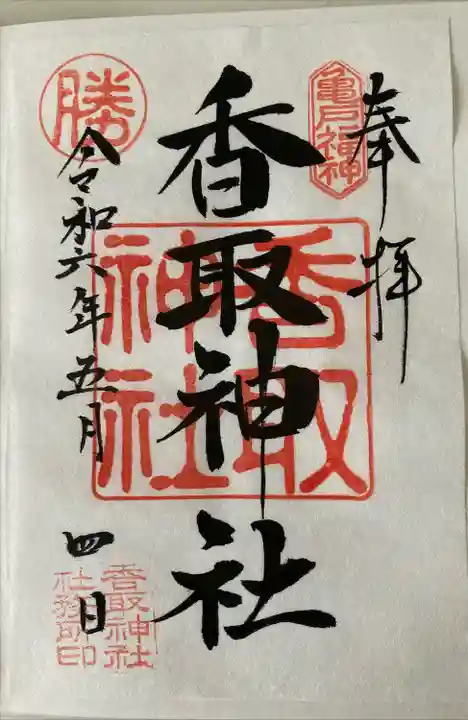 奉拝
亀戸福神
香取神社
香取
神社
勝
令和六年五月四日
香取神社
社務所印